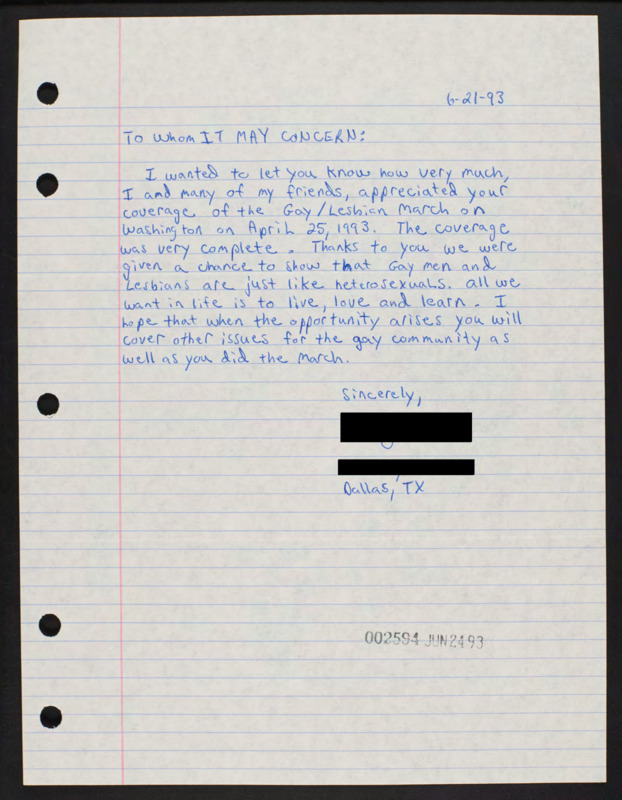 6-21-93
To Whom IT MAY CONCERN:
I wanted to let you know how very much,
I and many of my friends, appreciated your
coverage of the Gay/Lesbian March on
Washington on April 25, 1993. The coverage
was very complete. Thanks to you we were
given a chance to show that Gay men and
Lesbians are just like heterosexuals. all we
want in life is to live, love and learn. I
hope that when the opportunity arises you will
cover other issues for the gay community as
well as you did the March.
Sincerely,
Dallas, TX
002594 JUN 24 93